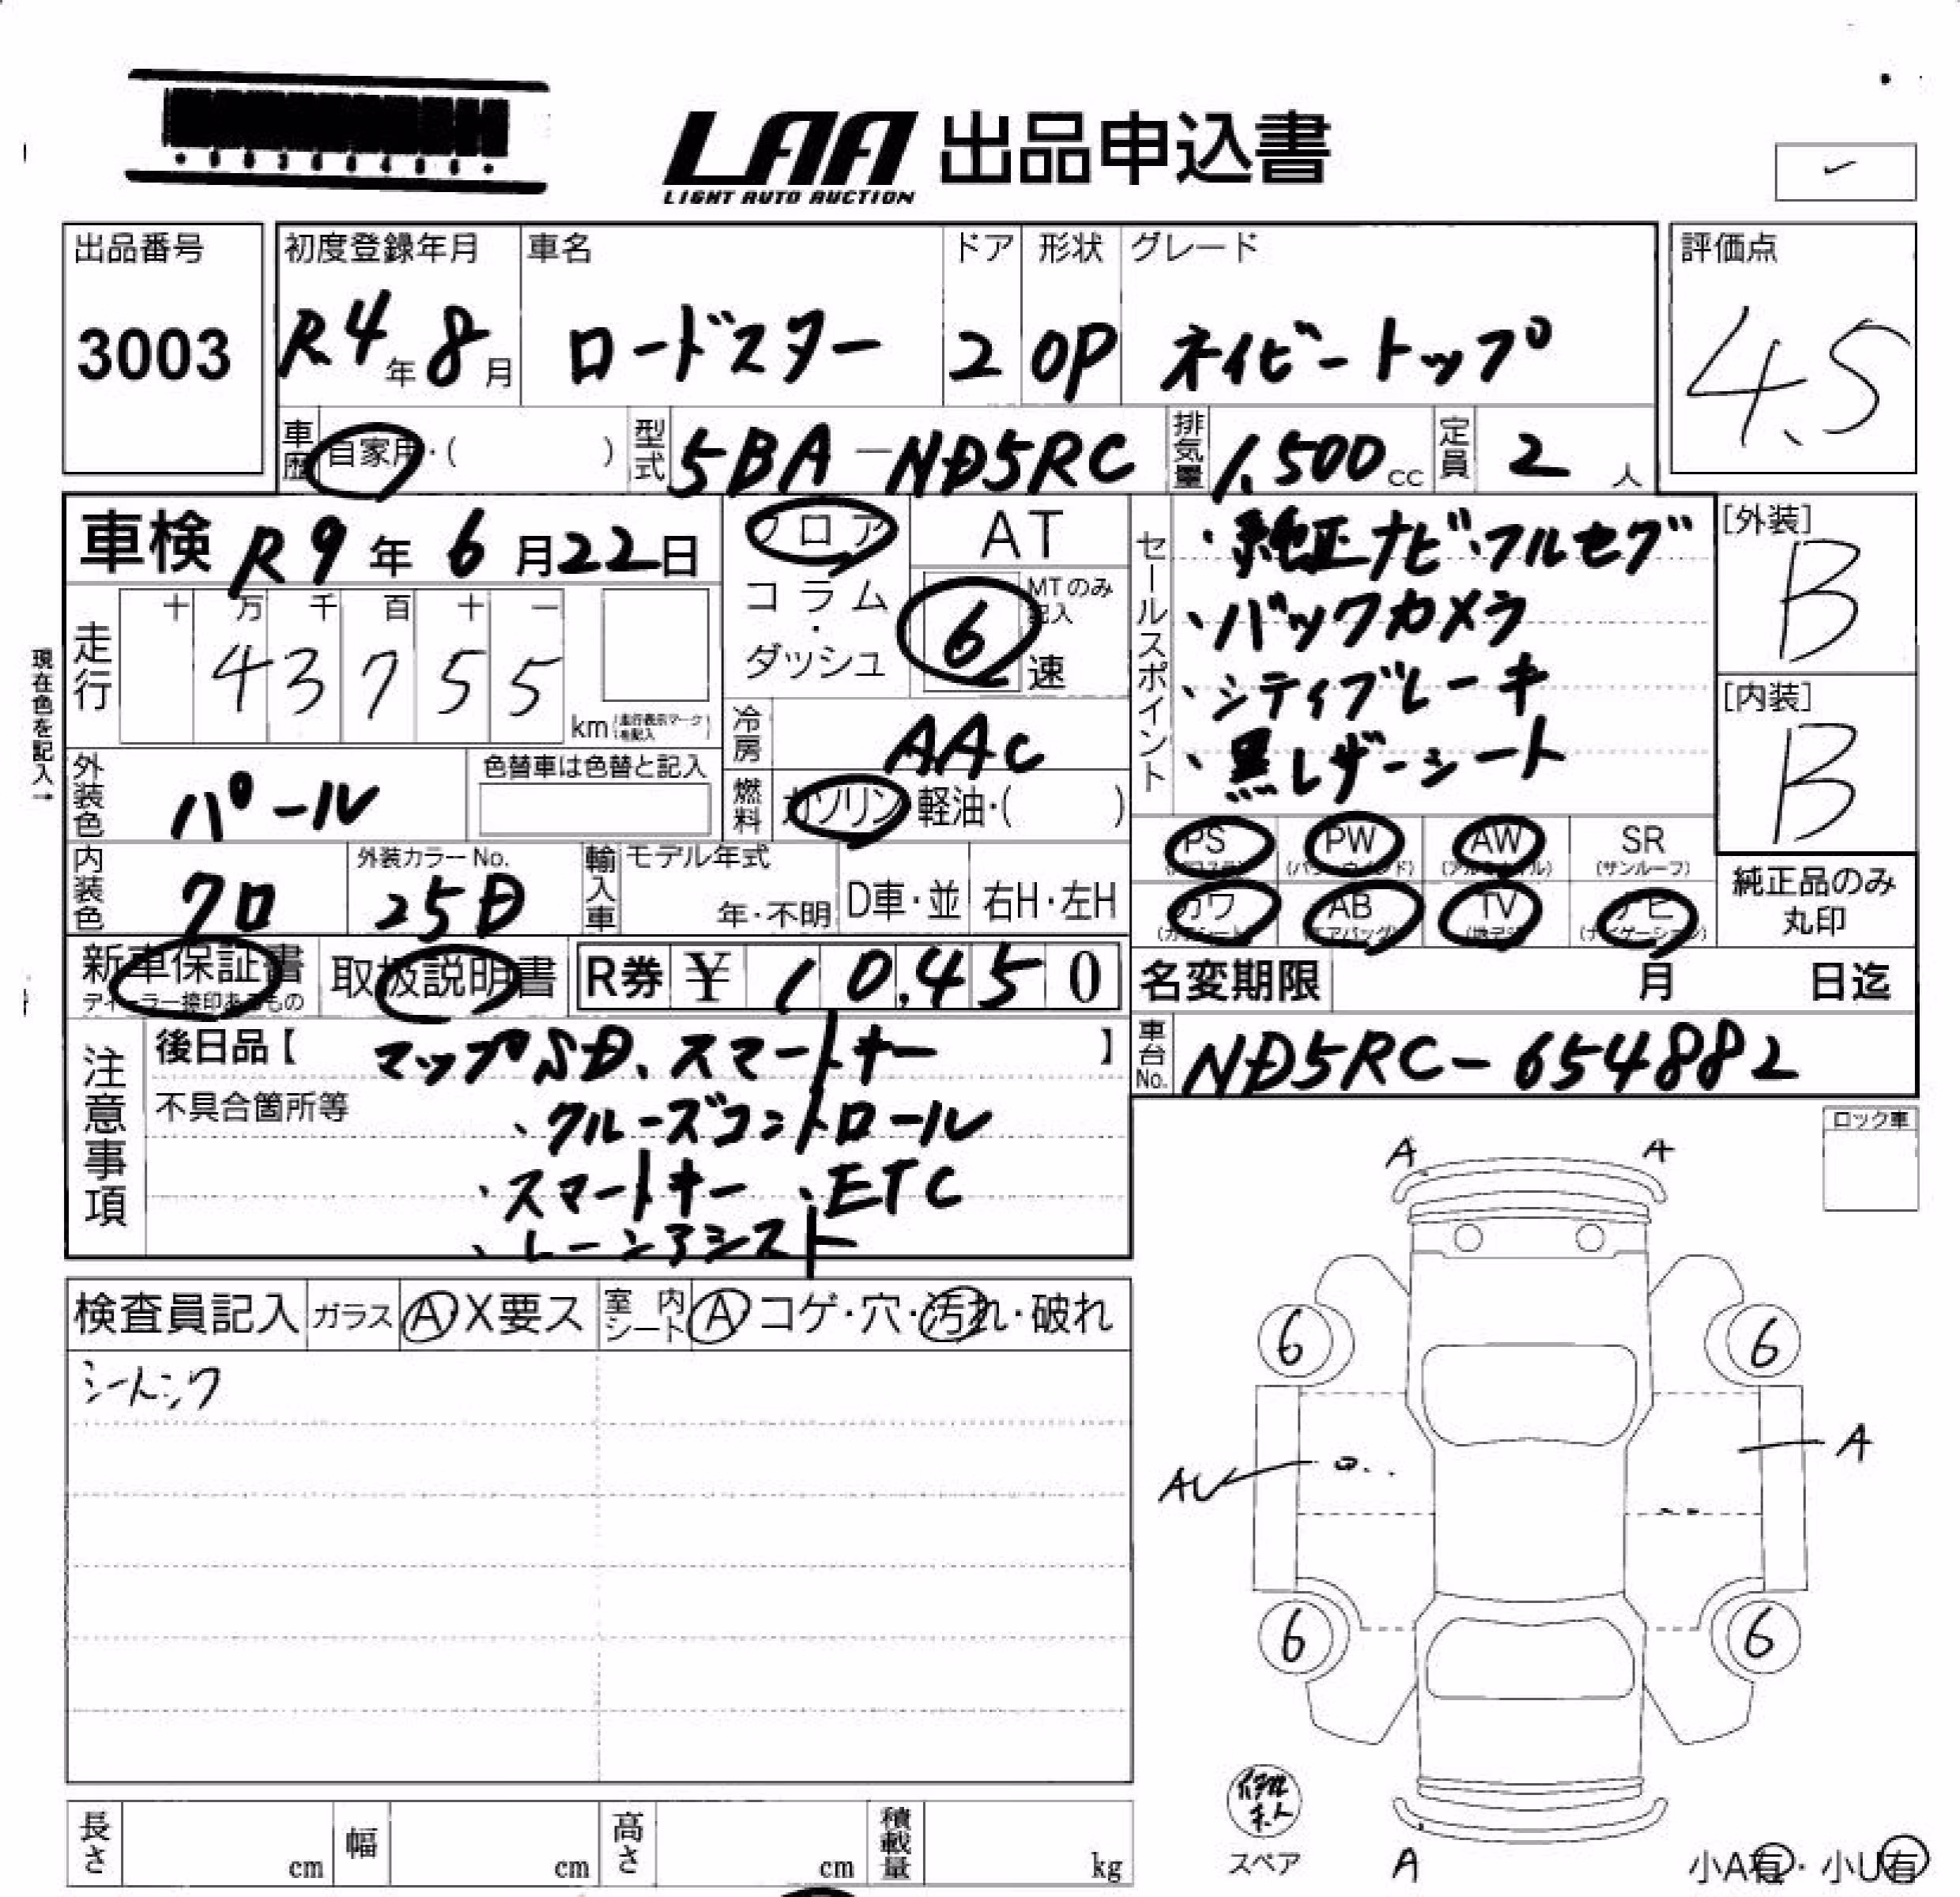 LAA 出品申込書
LIGHT AUTO AUCTION
出品番号
3003
初度登録年月 車名 ドア 形状 グレード
R4年8月 ロードスター 2 OP ネイビートップ
評価点
4.5
車歴 自家用・( ) 型式 5BA-ND5RC 排気量 1,500cc 定員 2人
車検 R9年6月22日
フロア
コラム
・
ダッシュ
AT
MTのみ記入
6速
セールスポイント
・純正ナビ・フルセグ
・バックカメラ
・シティブレーキ
・黒レザーシート
[外装]
B
[内装]
B
現在色を記入→
走行 十 万 千 百 十 一
43755
km (走行表示マークを記入)
冷房 AAC
燃料 ガソリン 軽油・( )
外装色 パール
色替車は色替と記入
PS PW AW SR
(サンルーフ)
カワ AB TV ナビ
純正品のみ
丸印
内装色 クロ
外装カラーNo.
25D
輸入車 モデル年式
年・不明 D車・並 右H・左H
新車保証書
ディーラー捺印あるもの
取扱説明書
R券 ¥ 10,450
名変期限 月 日迄
車台No. ND5RC-654882
注意事項
後日品【 マップSD、スマートキー 】
不具合箇所等
、クルーズコントロール
、スマートキー 、ETC
、レーンアシスト
ロック車
検査員記入 ガラス A X要ス 室内シート A コゲ・穴・汚れ・破れ
A A
6 6
A
AU
6 6
スペア
A
小A有・小U有
長さ cm 幅 cm 高さ cm 積載量 kg